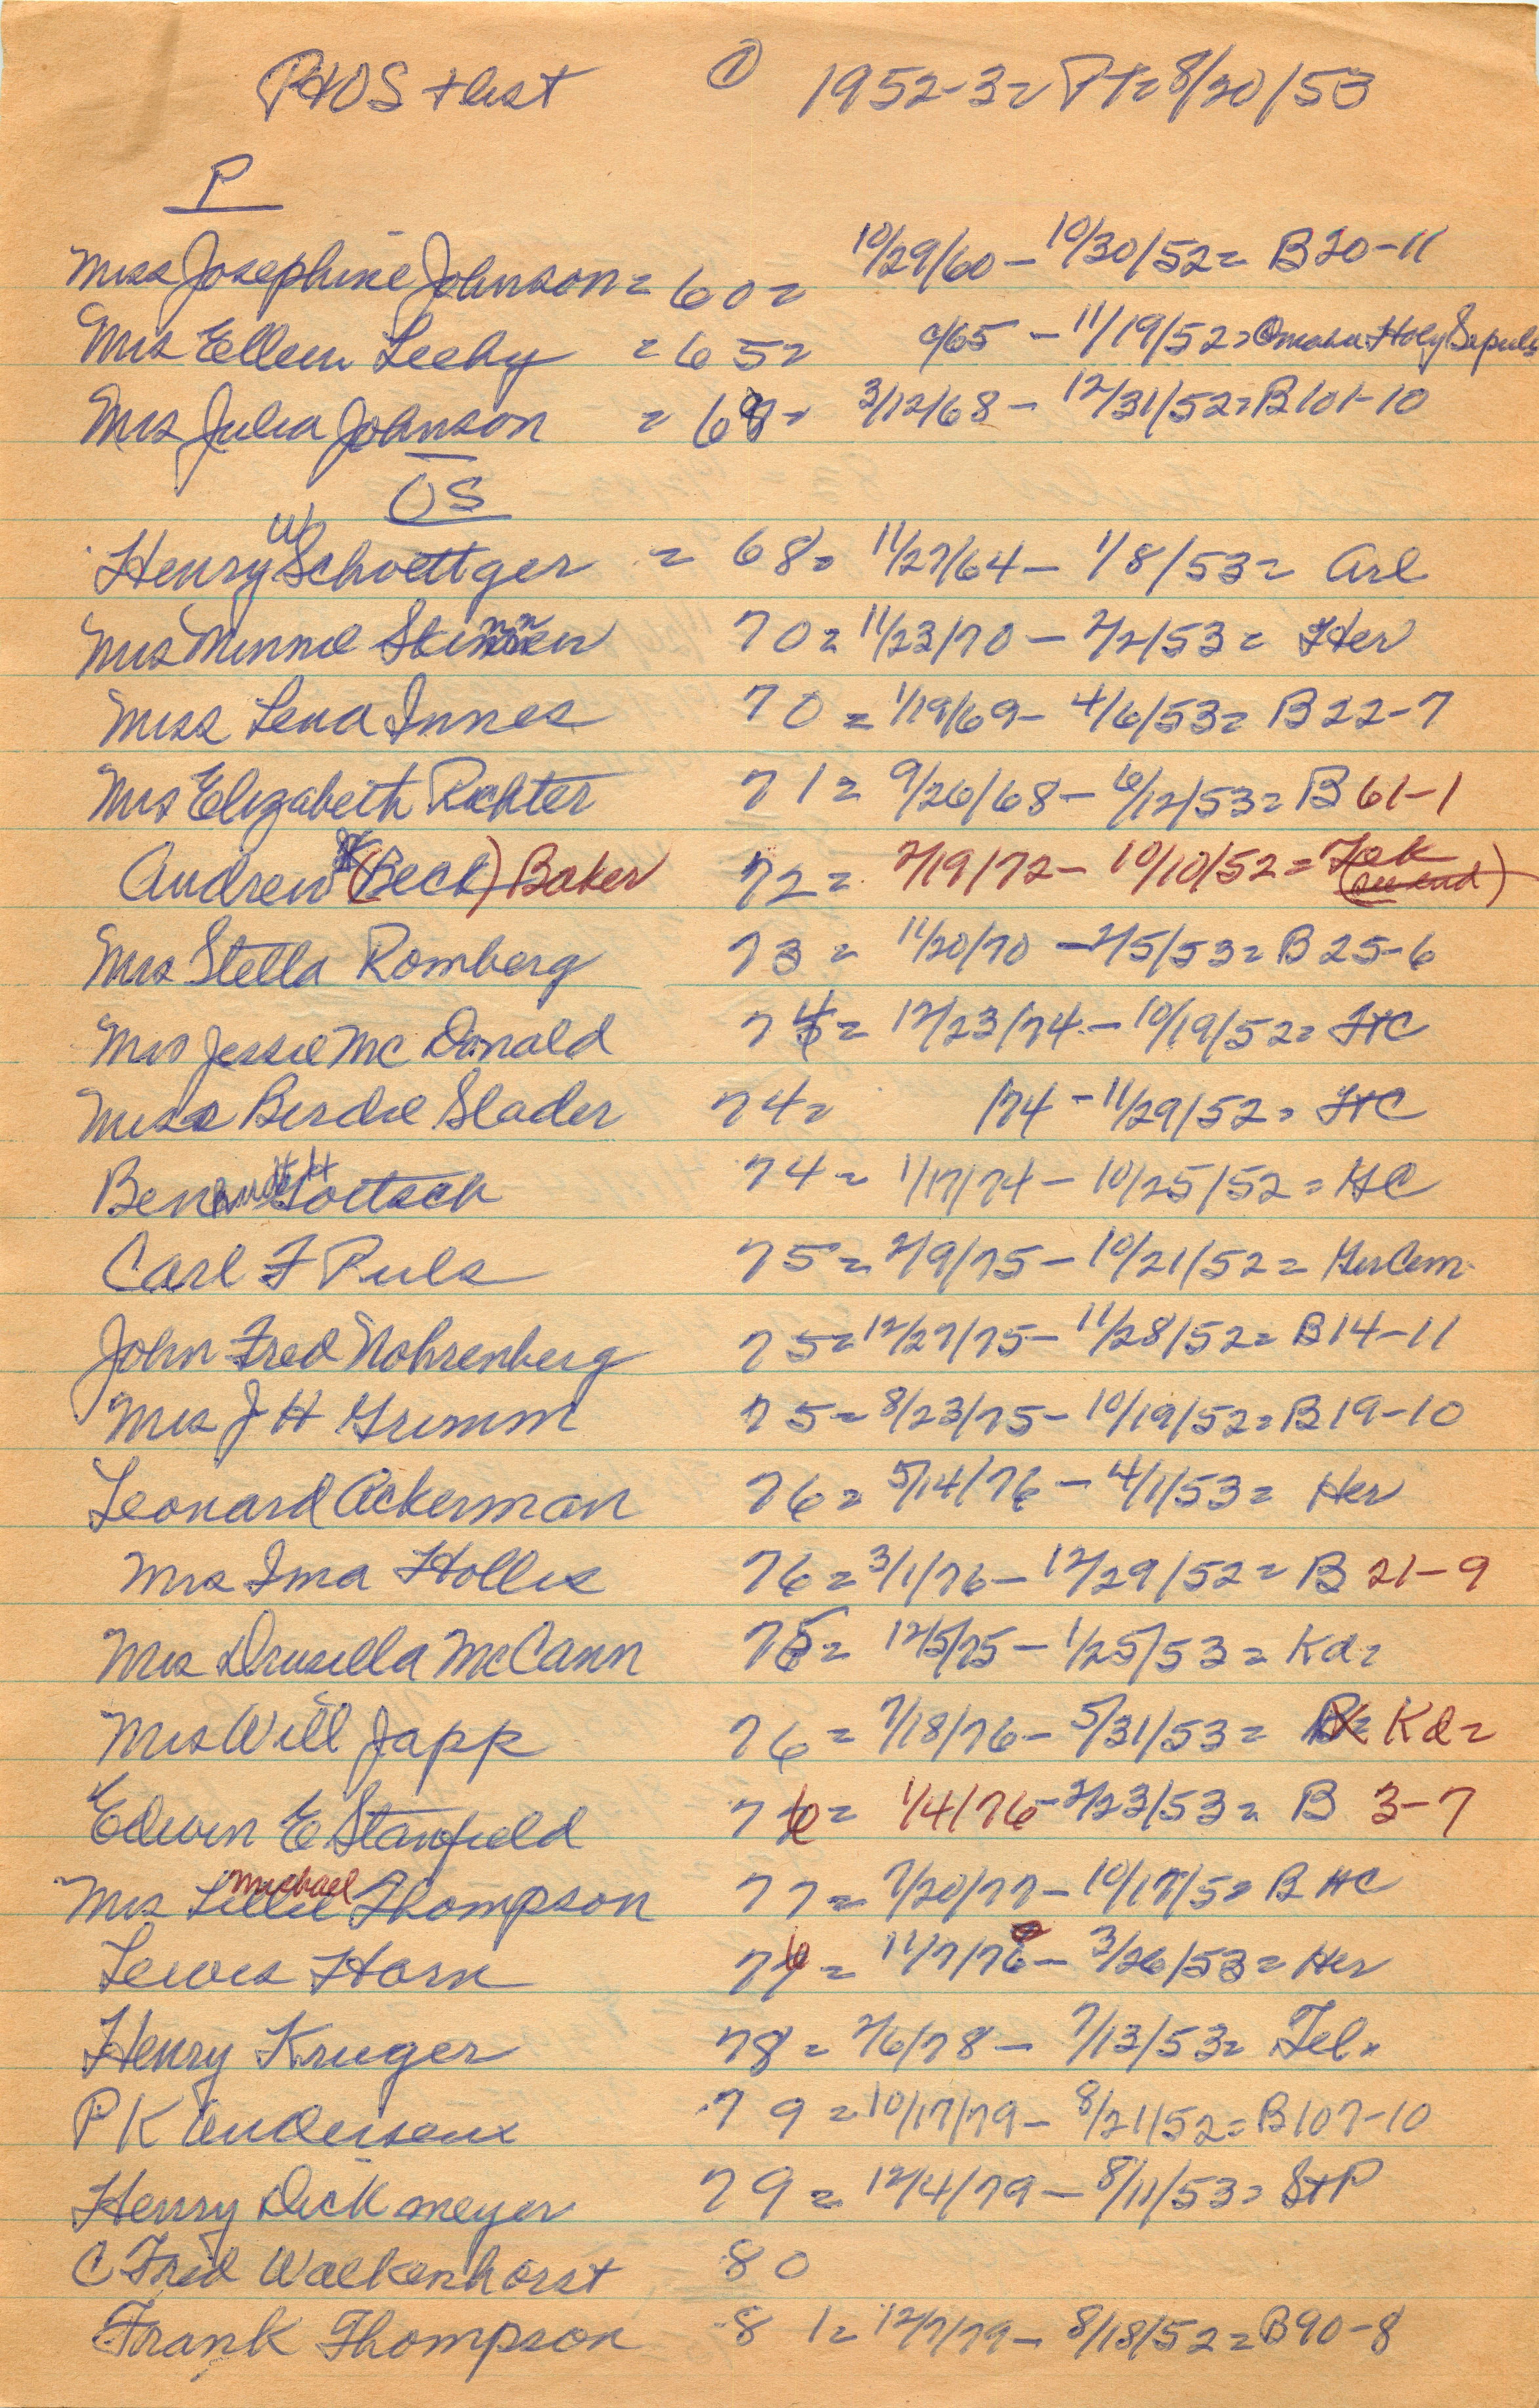 P+OS + list ① 1952-3= Pt= 8/20/53
P
Miss Josephine Johnson = 60= 10/29/60 - 10/30/52= B20-11
Mrs Ellen Leehy = 65= /65 - 11/19/52= Omaha Holy Sepulc
Mrs Julia Johnson = 68= 3/12/68 - 12/31/52= B101-10
OS
Henry W Schoettger = 68= 11/27/64 - 1/8/53= Arl
Mrs Minnie Skinner 70= 11/23/70 - 2/2/53= Her
Miss Lena Innes 70= 1/19/69 - 4/6/53= B22-7
Mrs Elizabeth Richter 71= 9/26/68 - 6/12/53= B 61-1
Andrew (Beck) Baker 72= 2/19/72 - 10/10/52= Tek (see end)
Mrs Stella Romberg 73= 11/20/70 - 2/5/53= B 25-6
Mrs Jessie McDonald 74= 12/23/74 - 10/19/52= HC
Miss Birdie Slader 74= /74 - 11/29/52= HC
Ben Goetsch 74= 1/17/74 - 10/25/52= HC
Carl F Puls 75= 2/9/75 - 10/21/52= Ger Cem
John Fred Nohrenberg 75= 12/27/75 - 11/28/52= B14-11
Mrs J H Grimm 75= 8/23/75 - 10/19/52= B19-10
Leonard Ackerman 76= 5/14/76 - 4/1/53= Her
Mrs Ima Hollis 76= 3/1/76 - 12/29/52= B 21-9
Mrs Drusilla McCann 75= 12/5/75 - 1/25/53= Kd=
Mrs Will Japp 76= 7/18/76 - 5/31/53= Kd=
Edwin E Stanfield 76= 1/4/76 - 2/23/53= B 3-7
Mrs Lillie Michael Thompson 77= 7/20/77 - 10/17/52 B HC
Lewis Horn 76= 11/7/76 - 3/26/53= Her
Henry Kruger 78= 2/6/78 - 7/13/53= Tel=
P K Andersen 79= 10/17/79 - 8/21/52= B107-10
Henry Dickmeyer 79= 12/4/79 - 8/11/53= StP
C Fred Walkenhorst 80
Frank Thompson 81= 12/7/79 - 8/18/52= B90-8